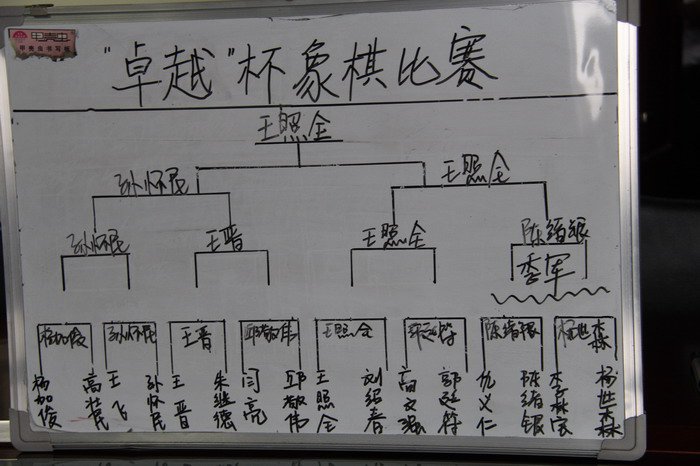 甲壳虫
甲壳虫书写板
"卓越"杯象棋比赛
王照全
孙怀民 王照全
孙怀民 王晋 王照全 陈绪银
季军
杨加俊 孙怀民 王晋 邱敬伟 王照全 郭延符 陈绪银 杨世森
杨加俊 高壮民 王飞 孙怀民 王晋 朱继德 闫亮 邱敬伟 王照全 刘绍春 高文强 郭延符 仇义仁 陈绪银 李森宗 杨世森